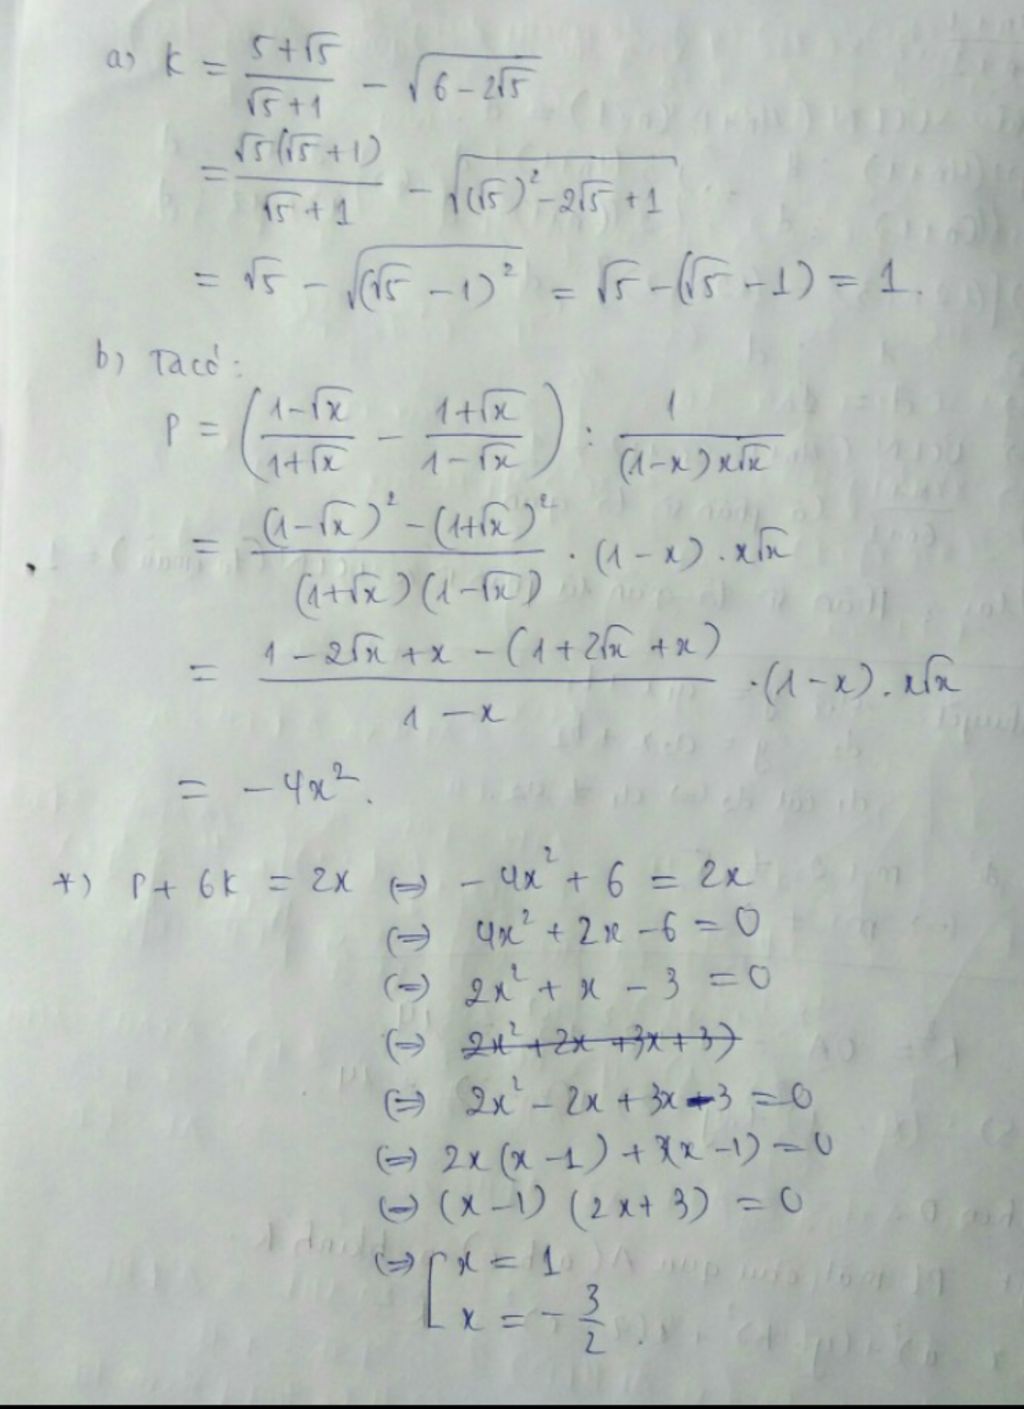 a) K = \frac{5+\sqrt{5}}{\sqrt{5}+1} - \sqrt{6-2\sqrt{5}}
= \frac{\sqrt{5}(\sqrt{5}+1)}{\sqrt{5}+1} - \sqrt{(\sqrt{5})^2-2\sqrt{5}+1}
= \sqrt{5} - \sqrt{(\sqrt{5}-1)^2} = \sqrt{5}-(\sqrt{5}-1) = 1.
b) Ta có:
P = \left(\frac{1-\sqrt{x}}{1+\sqrt{x}} - \frac{1+\sqrt{x}}{1-\sqrt{x}}\right) : \frac{1}{(1-x)x\sqrt{x}}
= \frac{(1-\sqrt{x})^2-(1+\sqrt{x})^2}{(1+\sqrt{x})(1-\sqrt{x})} . (1-x) . x\sqrt{x}
= \frac{1-2\sqrt{x}+x-(1+2\sqrt{x}+x)}{1-x} . (1-x) . x\sqrt{x}
= -4x^2.
*) P + 6K = 2x (=) -4x^2 + 6 = 2x
(=) 4x^2 + 2x - 6 = 0
(=) 2x^2 + x - 3 = 0
(=) 2x^2 + 2x + 3x + 3)
(=) 2x^2 - 2x + 3x - 3 = 0
(=) 2x(x-1) + 3(x-1) = 0
(=) (x-1) (2x+3) = 0
(=) [ x = 1
x = -\frac{3}{2}.